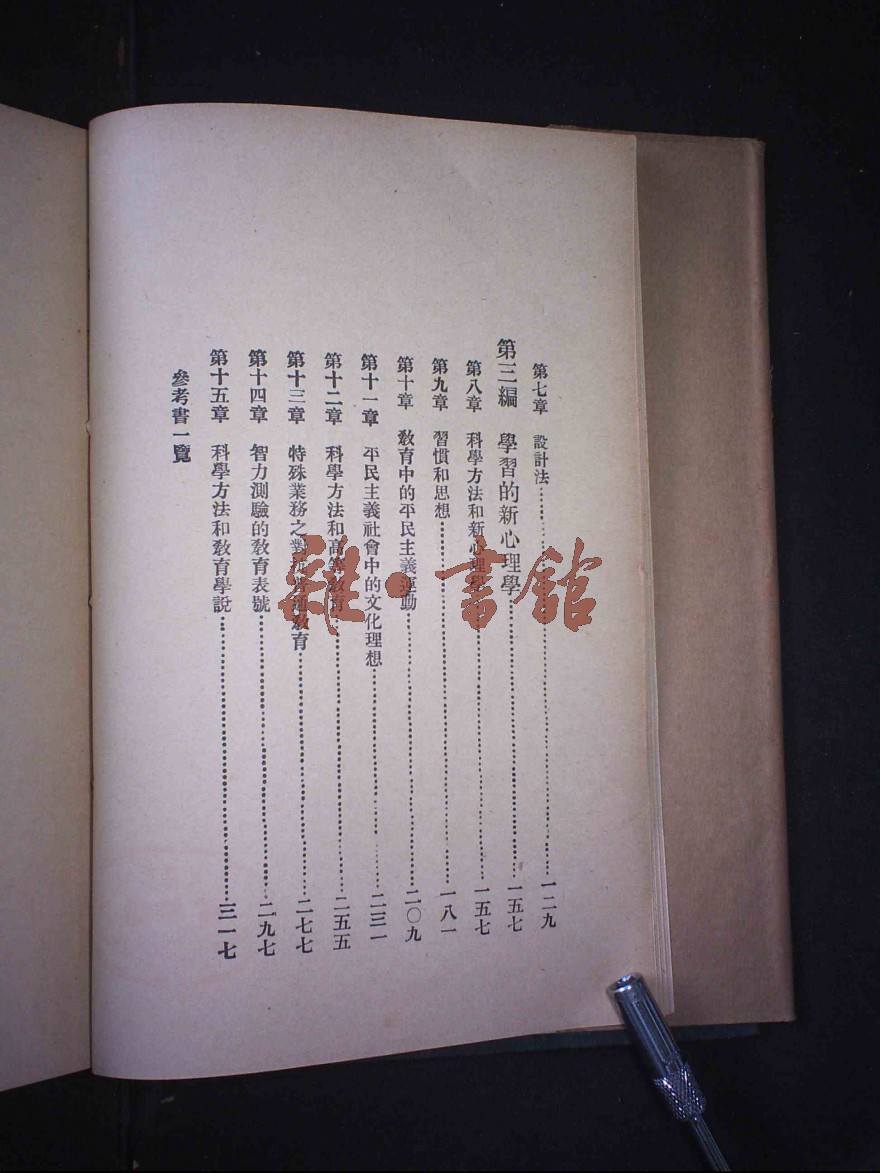 第七章 設計法……一二九
第三編 學習的新心理學……一五七
第八章 科學方法和新心理學……一五七
第九章 習慣和思想……一八一
第十章 敎育中的平民主義運動……二〇九
第十一章 平民主義社會中的文化理想……二三一
第十二章 科學方法和高等敎育……二五五
第十三章 特殊業務之對抗普通敎育……二七七
第十四章 智力測驗的敎育表號……二九七
第十五章 科學方法和敎育學說……三一七
參考書一覽
雜·書館